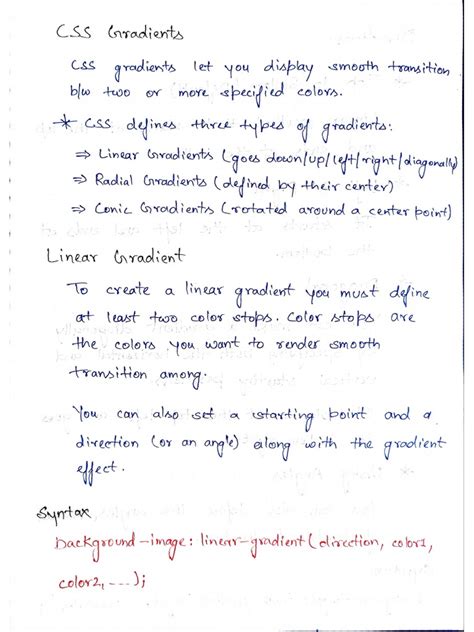 CSS Gradients
CSS gradients let you display smooth transition
b/w two or more specified colors.
* CSS defines three types of gradients:
⇒ Linear Gradients (goes down/up/left/right/diagonally)
⇒ Radial Gradients (defined by their center)
⇒ Conic Gradients (rotated around a center point)
Linear Gradient
To create a linear gradient you must define
at least two color stops. Color stops are
the colors you want to render smooth
transition among.
You can also set a starting point and a
direction (or an angle) along with the gradient
effect.
Syntax
background-image: linear-gradient(direction, color1,
color2, ---);